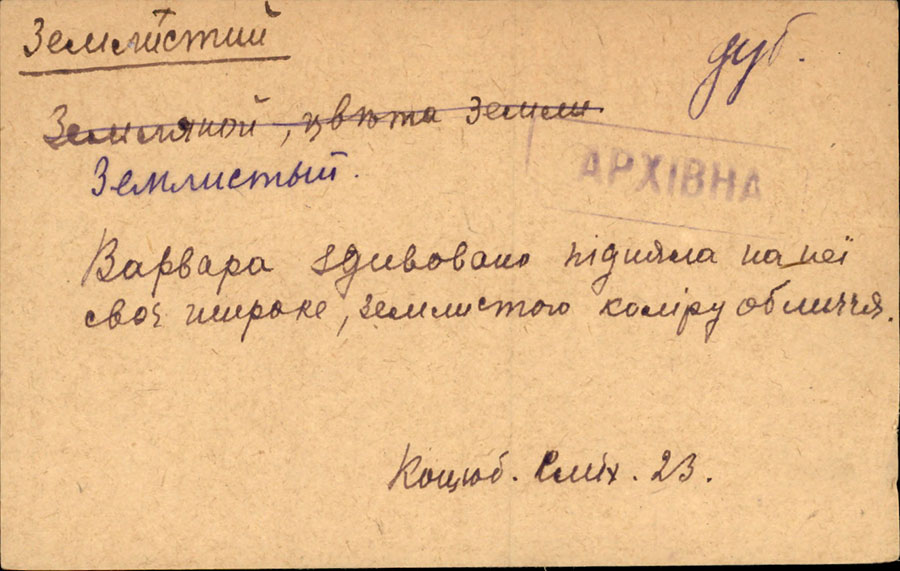 Землистий
дуб.
Земляной, цвѣта Земли
Землистый.
АРХІВНА
Варвара здивовано підняла на неї
своє широке, землистого коліру обличчя.
Коцюб. Сміх. 23.